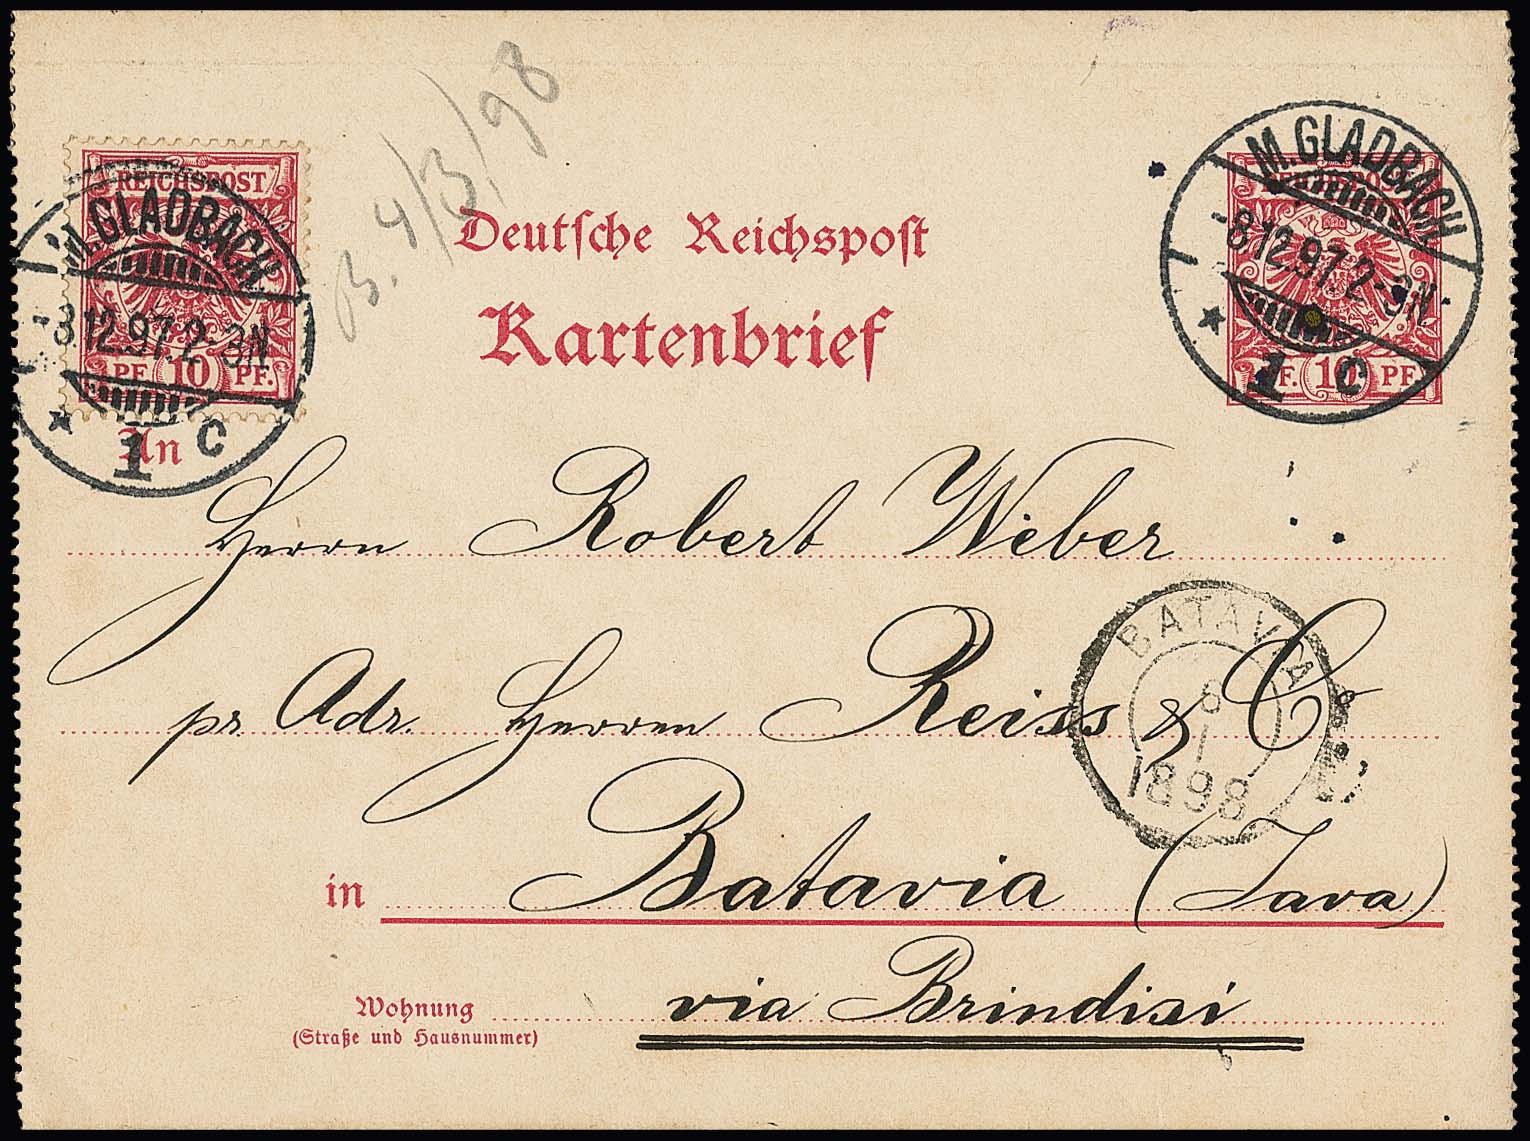 B. 4/3/98
REICHSPOST
PF. 10 PF.
M.GLADBACH
-8.12.97.2-3N
* 1 c
M.GLADBACH
-8.12.97.2-3N
* 1 c
PF. 10 PF.
Deutsche Reichspost
Kartenbrief
An
Herrn Robert Weber
pr Adr. Herren Reiss & Co
BATAVIA
8
1
1898
in Batavia (Java)
Wohnung via Brindisi
(Straße und Hausnummer)